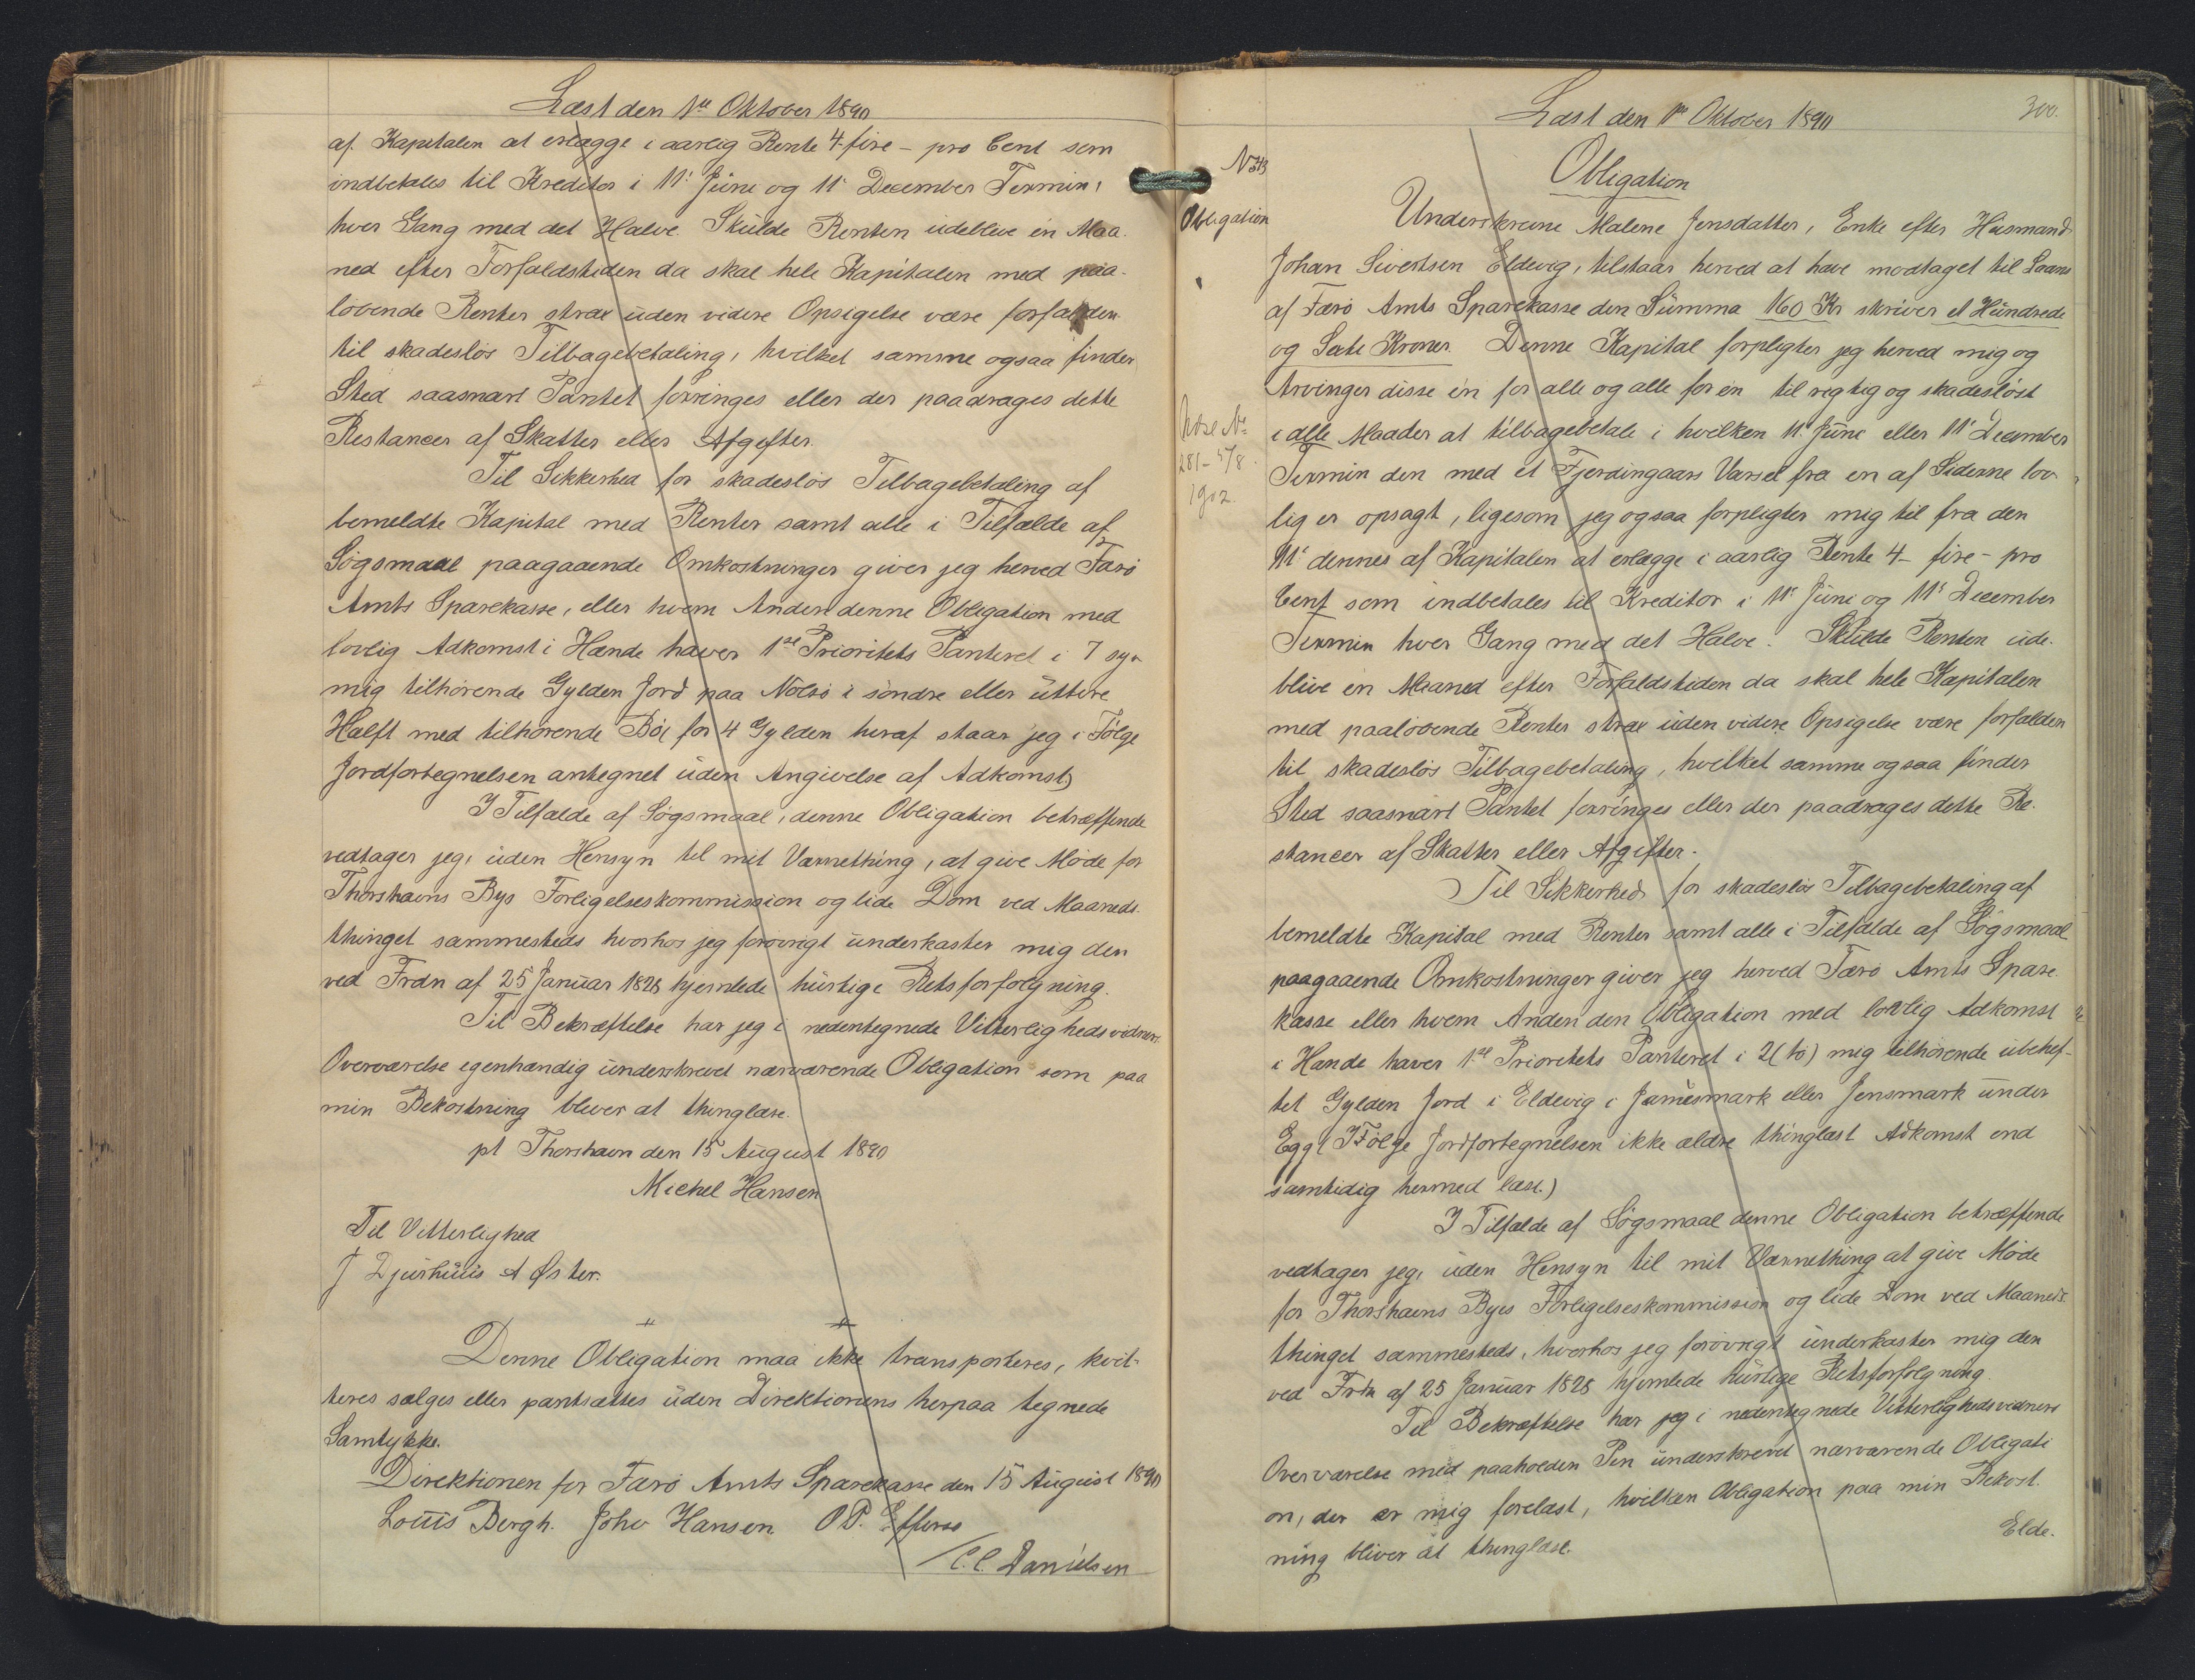 Læst den 1ste Oktober 1890
af Kapitalen at erlægge i aarlig Rente 4 fire - pro Cent som
indbetales til Kreditor i 11' Juni og 11' December Termin,
hver Gang med det Halve. Skulde Renten udeblive én Maa-
ned efter Forfaldstiden da skal hele Kapitalen med paa-
løbende Renter strax uden videre Opsigelse være forfalden
til skadesløs Tilbagebetaling, hvilket samme ogsaa finder
Sted saasnart Pantet forringes eller der paadrages dette
Restancer af Skatter eller Afgifter.
Til Sikkerhed for skadesløs Tilbagebetaling af
bemeldte Kapital med Renter samt alle i Tilfælde af
Søgsmaal paagaaende Omkostninger giver jeg herved Færø
Amts Sparekasse, eller hvem Anden denne Obligation med
lovlig Adkomst i Hænde haver 1ste Prioritets Panteret i 7 syv
mig tilhørende Gylden Jord paa Nolsø i søndre eller uttere
Hælft med tilhørende Bø( for 4 Gylden heraf staar jeg i Følge
Jordfortegnelsen antegnet uden Angivelse af Adkomst)
I Tilfælde af Søgsmaal, denne Obligation betræffende
vedtager jeg, uden Hensyn til mit Værnething, at give Møde for
Thorshavns Bys Forligelseskommission og lide Dom ved Maaneds-
thinget sammesteds hvorhos jeg forøvrigt underkaster mig den
ved Frdn af 25 Januar 1828 hjemlede hurtige Retsforfølgning.
Til Bekræftelse har jeg i nedentegnede Vitterlighedsvidners
Overværelse egenhændig underskrevet nærværende Obligation som paa
min Bekostning bliver at thinglæse.
pt Thorshavn den 15 August 1890
Michel Hansen
Til Vitterlighed
J Djurhuus A Øster.
Denne Obligation maa ikke transporteres, kvit-
teres sælges eller pantsættes uden Direktionens herpaa tegnede
Samtykke.
Direktionen for Færø Amts Sparekasse den 15 August 1890
Louis Bergh. Johs Hansen O P. Effersø
/C. C. Danielsen
Læst den 1ste Oktober 1890
300.
Obligation
N 313
Obligation
Underskrevne Malene Jensdatter, Enke efter Husmand
Johan Sivertsen Eldevig, tilstaar herved at have modtaget til Laans
af Færø Amts Sparekasse den Summa 160 Kr skriver et Hundrede
og Sexti Kroner. Denne Kapital forpligter jeg herved mig og
Arvinger disse én for alle og alle for én til rigtig og skadesløst
i alle Maader at tilbagebetale i hvilken 11' Juni eller 11' December
281 - 5/8
1902.
Termin den med et Fjerdingaars Varsel fra en af Siderne lov-
lig er opsagt, ligesom jeg ogsaa forpligter mig til fra den
11' dennes af Kapitalen at erlægge i aarlig Rente 4 - fire - pro
Cent som indbetales til Kreditor i 11' Juni og 11' December
Termin hver Gang med det Halve. Skulde Renten ude-
blive én Maaned efter Forfaldstiden da skal hele Kapitalen
med paaløbende Renter strax uden videre Opsigelse være forfalden
til skadesløs Tilbagebetaling, hvilket samme ogsaa finder
Sted saasnart Pantet forringes eller der paadrages dette Re-
stancer af Skatter eller Afgifter.
Til Sikkerhed for skadesløs Tilbagebetaling af
bemeldte Kapital med Renter samt alle i Tilfælde af Søgsmaal
paagaaende Omkostninger giver jeg herved Færø Amts Spare-
kasse eller hvem Anden den Obligation med lovlig Adkomst
i Hænde haver 1ste Prioritets Panteret i 2( to) mig tilhørende ubehef-
tet Gylden Jord i Eldevig i Jamesmark eller Jensmark under
Egg( I Følge Jordfortegnelsen ikke ældre thinglæst Adkomst end
samtidig hermed læst.)
I Tilfælde af Søgsmaal denne Obligation betræffende
vedtager jeg, uden Hensyn til mit Værnething at give Møde
for Thorshavns Byes Forligelseskommission og lide Dom ved Maaneds-
thinget sammesteds, hvorhos jeg forøvrigt underkaster mig den
ved Frdn af 25 Januar 1828 hjemlede hurtige Retsforfølgning.
Til Bekræftelse har jeg i nedentegnede Vitterlighedsvidners
Overværelse med paaholden Pen underskrevet nærværende Obligati
on, der er mig forelæst, hvilken Obligation paa min Bekost-
ning bliver at thinglæse.
Elde.